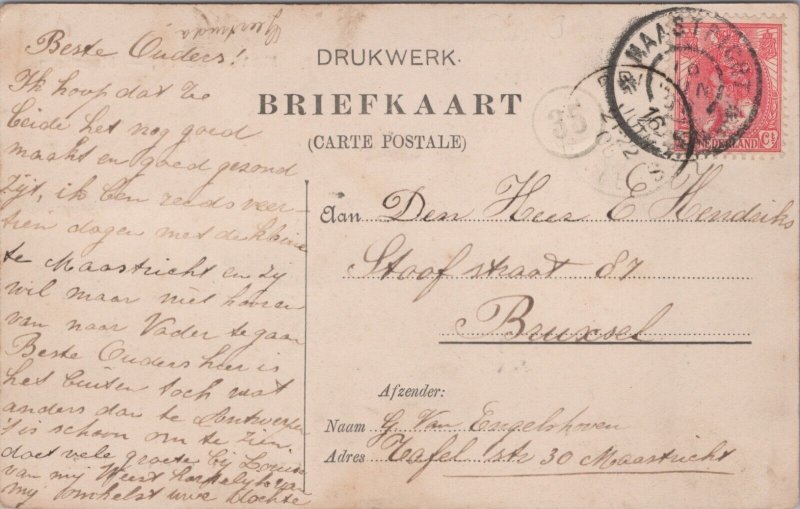 Beste Ouders!
Geertruda
Ik hoop dat Ze
beide het nog goed
maakt en goed gezond
zijt, ik ben reeds veer-
tien dagen met de kleine
te Maastricht en zij
wil maar niet hooren
van naar Vader te gaan
Beste Ouders hier is
het buiten toch wat
anders dan te Antwerpen
't is schoon om te zien.
doet vele groete bij Louise
van mij Weest hartelijk van
mij omhelst uwe Dochter
DRUKWERK.
BRIEFKAART
(CARTE POSTALE)
35
MAASTRICHT
21-22
NEDERLAND
Aan Den Heer E Hendriks
Stoofstraat 87
Bruxsel
Afzender:
Naam G. Van Engelshoven
Adres Tafel str 30 Maastricht